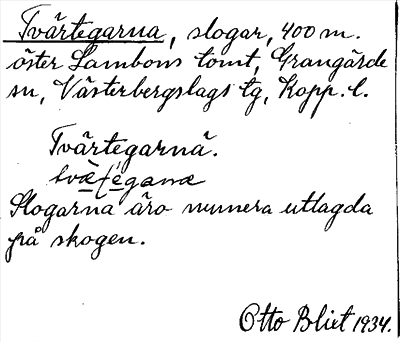 Tvärtegarna, slogar, 400 m.
öster Lambons tomt, Grangärde
sn, Västerbergslags tg, Kopp. l.
Tvärtegarnä.
Slogarna äro numera utlagda
på skogen.
Otto Blixt 1934.